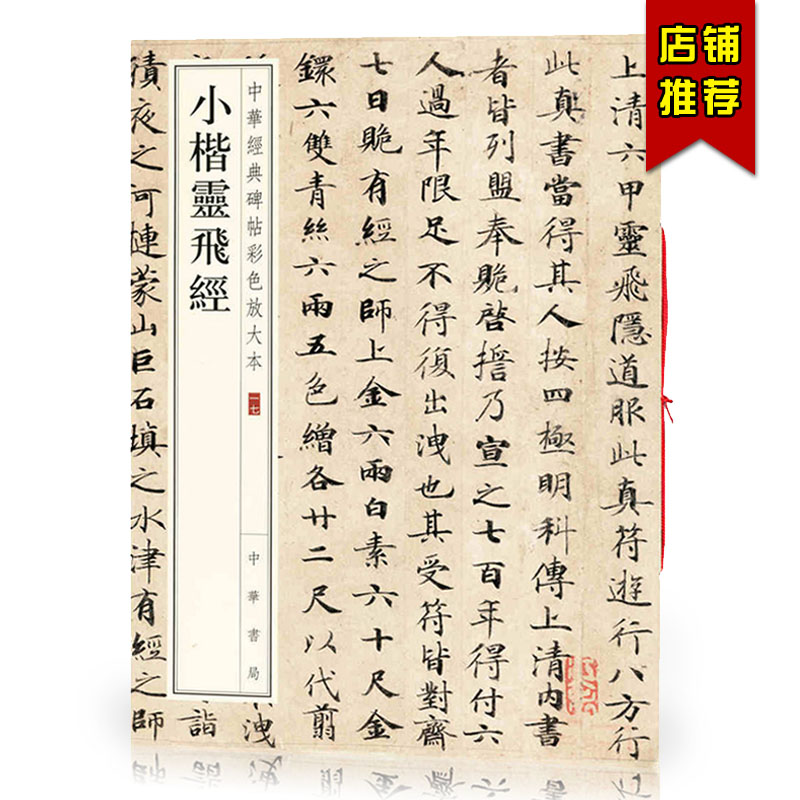 店铺
推荐
上清六甲靈飛隱道服此真符遊行八方行
此真書當得其人按四極明科傳上清內書
者皆列盟奉䝱啓誓乃宣之七百年得付六
人過年限足不得復出洩也其受符皆對齋
七日䝱有經之師上金六兩白素六十尺金
鐶六雙青絲六兩五色繒各廿二尺以代翦
洩
中華經典碑帖彩色放大本 一七
中華書局
小楷靈飛經
詣
積夜之河摙蒙山巨石填之水津有經之師